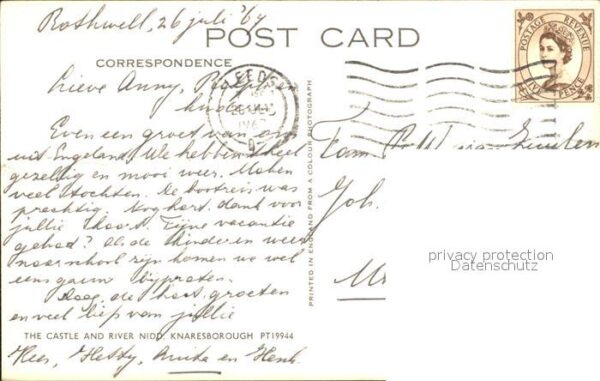 Rothwell, 26 juli '67
POST CARD
CORRESPONDENCE
Lieve Anny,
kinderen
Even een groet van ons
uit Engeland. We hebben heel
gezellig en mooi weer. Maken
veel tochten. De bootreis was
prachtig. Nog hart. dank voor
jullie kaart. Fijne vacantie
gehad? Als de kinderen weer
naar school zijn komen we wel
eens gauw bijpraten.
Daag, de hart. groeten
en veel liefs van jullie
THE CASTLE AND RIVER NIDD, KNARESBOROUGH PT19944
Kees, Hetty, Anita en Henk
PRINTED IN ENGLAND FROM A COLOUR PHOTOGRAPH
LEEDS
POSTAGE REVENUE
FIVE PENCE
Fam.
Joh.
privacy protection
Datenschutz